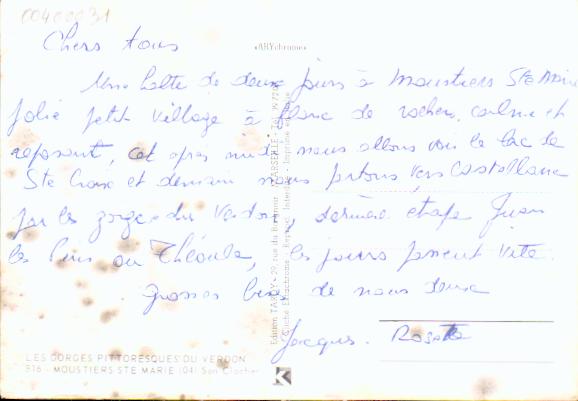 00400031
Chers tous
«ARYchrome»
Une halte de deux jours à Moustiers Ste Marie
jolie petit village à flanc de rocher, calme et
reposant, cet apres midi nous allons voir le lac de
Ste Croix et demain nous partons vers Castellane
par les gorges du Verdon, dernière etape Juan
les Pins ou Théoule, les jours passent vite.
grosses bises de nous deux
Jacques. Rosette
LES GORGES PITTORESQUES DU VERDON
816 - MOUSTIERS STE MARIE (04) Son Clocher
Edition TARDY - 29, rue du - MARSEILLE -
Cliché Ektachrome - Reprod. Interdite - Imprimé en
K